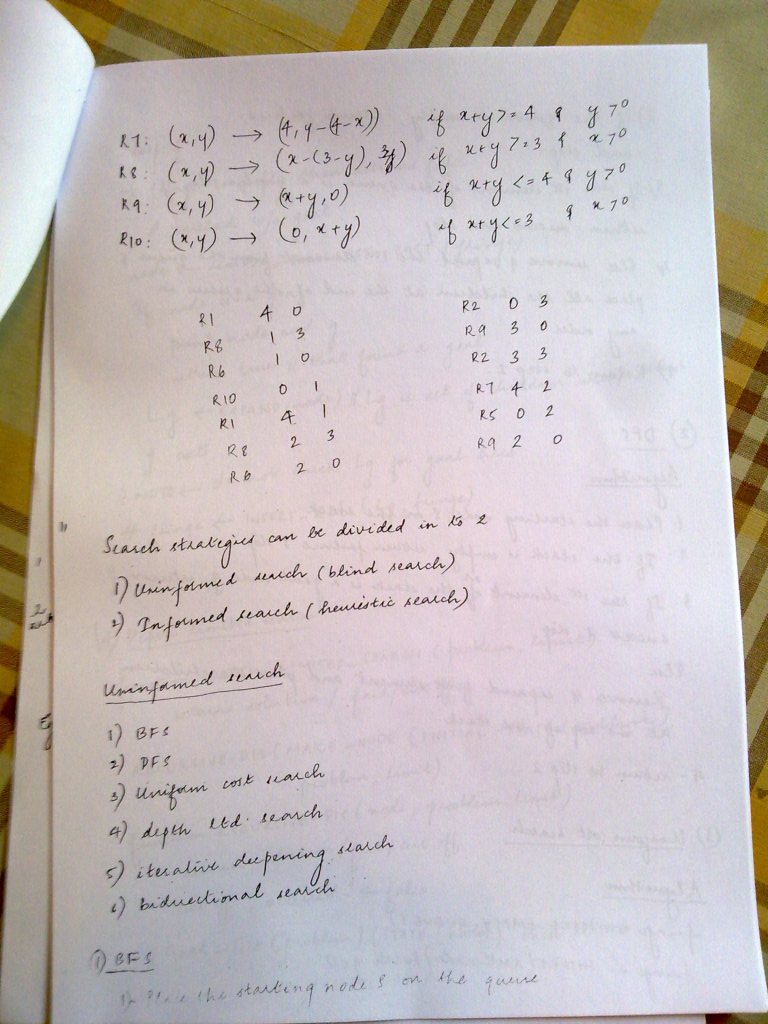 R7: (x,y) → (4, y-(4-x)) if x+y >= 4 & y > 0
R8: (x,y) → (x-(3-y), 3) if x+y >= 3 & x > 0
R9: (x,y) → (x+y, 0) if x+y <= 4 & y > 0
R10: (x,y) → (0, x+y) if x+y <= 3 & x > 0
R1 4 0
R8 1 3
R6 1 0
R10 0 1
R1 4 1
R8 2 3
R6 2 0
R2 0 3
R9 3 0
R2 3 3
R7 4 2
R5 0 2
R9 2 0
Search strategies can be divided in to 2
1) Uninformed search (blind search)
2) Informed search (heuristic search)
Uninformed search
1) BFS
2) DFS
3) Uniform cost search
4) depth ltd. search
5) iterative deepening search
6) bidirectional search
① BFS
1) Place the starting node S on the queue